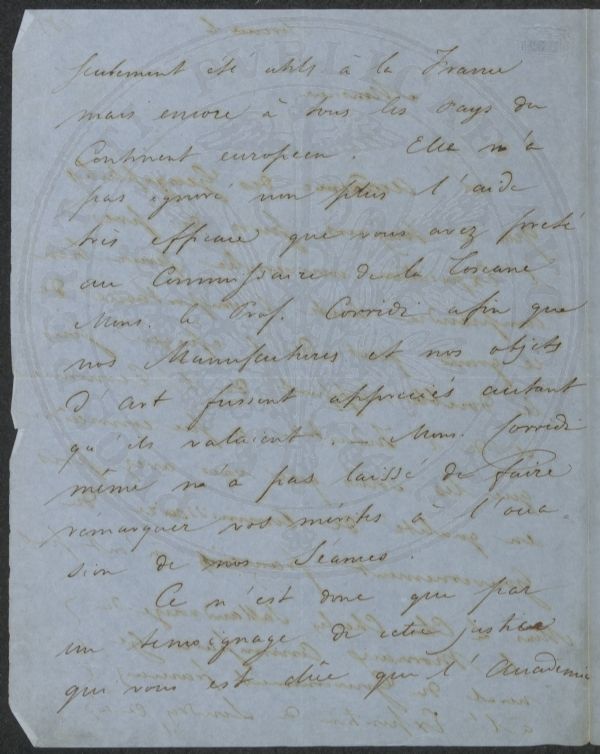 seulement été utils à la France
mais encore à tous les Pays du
Continent européen. Elle n'a
pas ignoré non plus l'aide
très efficace que vous avez prêté
au Commissaire de la Toscane
Mons. le Prof. Corridi afin que
nos Manufactures et nos objets
d'art fussent appreciés autant
qu'ils valaient. — Mons. Corridi
même n'a pas laissé de faire
remarquer vos mérites à l'occa-
sion de nos Séances.
Ce n'est donc que par
un temoignage de cette justice
qui vous est düe que l'Academie